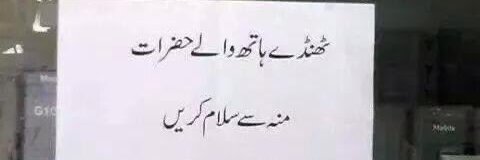 ٹھنڈے ہاتھ والے حضرات
منہ سے سلام کریں
G10